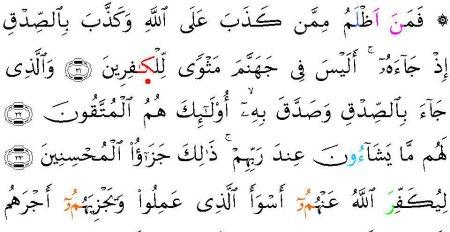 ۞ فَمَنَ اَظْلَمُ مِمَّن كَذَبَ عَلَى ٱللَّهِ وَكَذَّبَ بِٱلصِّدْقِ
إِذْ جَآءَهُۥٓ ۚ أَلَيْسَ فِى جَهَنَّمَ مَثْوًى لِّلْكَٰفِرِينَ ٣١ وَٱلَّذِى
جَآءَ بِٱلصِّدْقِ وَصَدَّقَ بِهِۦٓ ۙ أُو۟لَٰٓئِكَ هُمُ ٱلْمُتَّقُونَ ٣٢
لَهُم مَّا يَشَآءُونَ عِندَ رَبِّهِمْ ۚ ذَٰلِكَ جَزَآؤُا۟ ٱلْمُحْسِنِينَ ٣٣
لِيُكَفِّرَ ٱللَّهُ عَنْهُمُۥٓ أَسْوَأَ ٱلَّذِى عَمِلُوا۟ وَيَجْزِيَهُمُۥٓ أَجْرَهُم